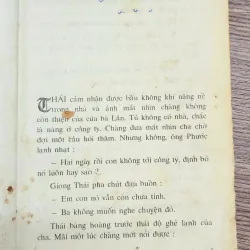 THÁI cảm nhận được bầu không khí nặng nề
trong nhà và ánh mắt nhìn chàng không
còn thiện của của bà Lân. Tú không có nhà, chắc
là nàng ở công ty. Chàng đưa mắt nhìn cha chờ
đợi một câu hỏi thăm. Nhưng không, ông Phước
lạnh nhạt :
– Hai ngày rồi con không tới công ty, định bỏ
nó luôn hay sao ?
Giọng Thái pha chút đượm buồn :
– Em con nó vẫn còn chưa tỉnh.
– Ba không muốn nghe chuyện đó.
Thái bàng hoàng trước thái độ ghẻ lạnh của
cha. Mãi một lúc chàng mới nói được :